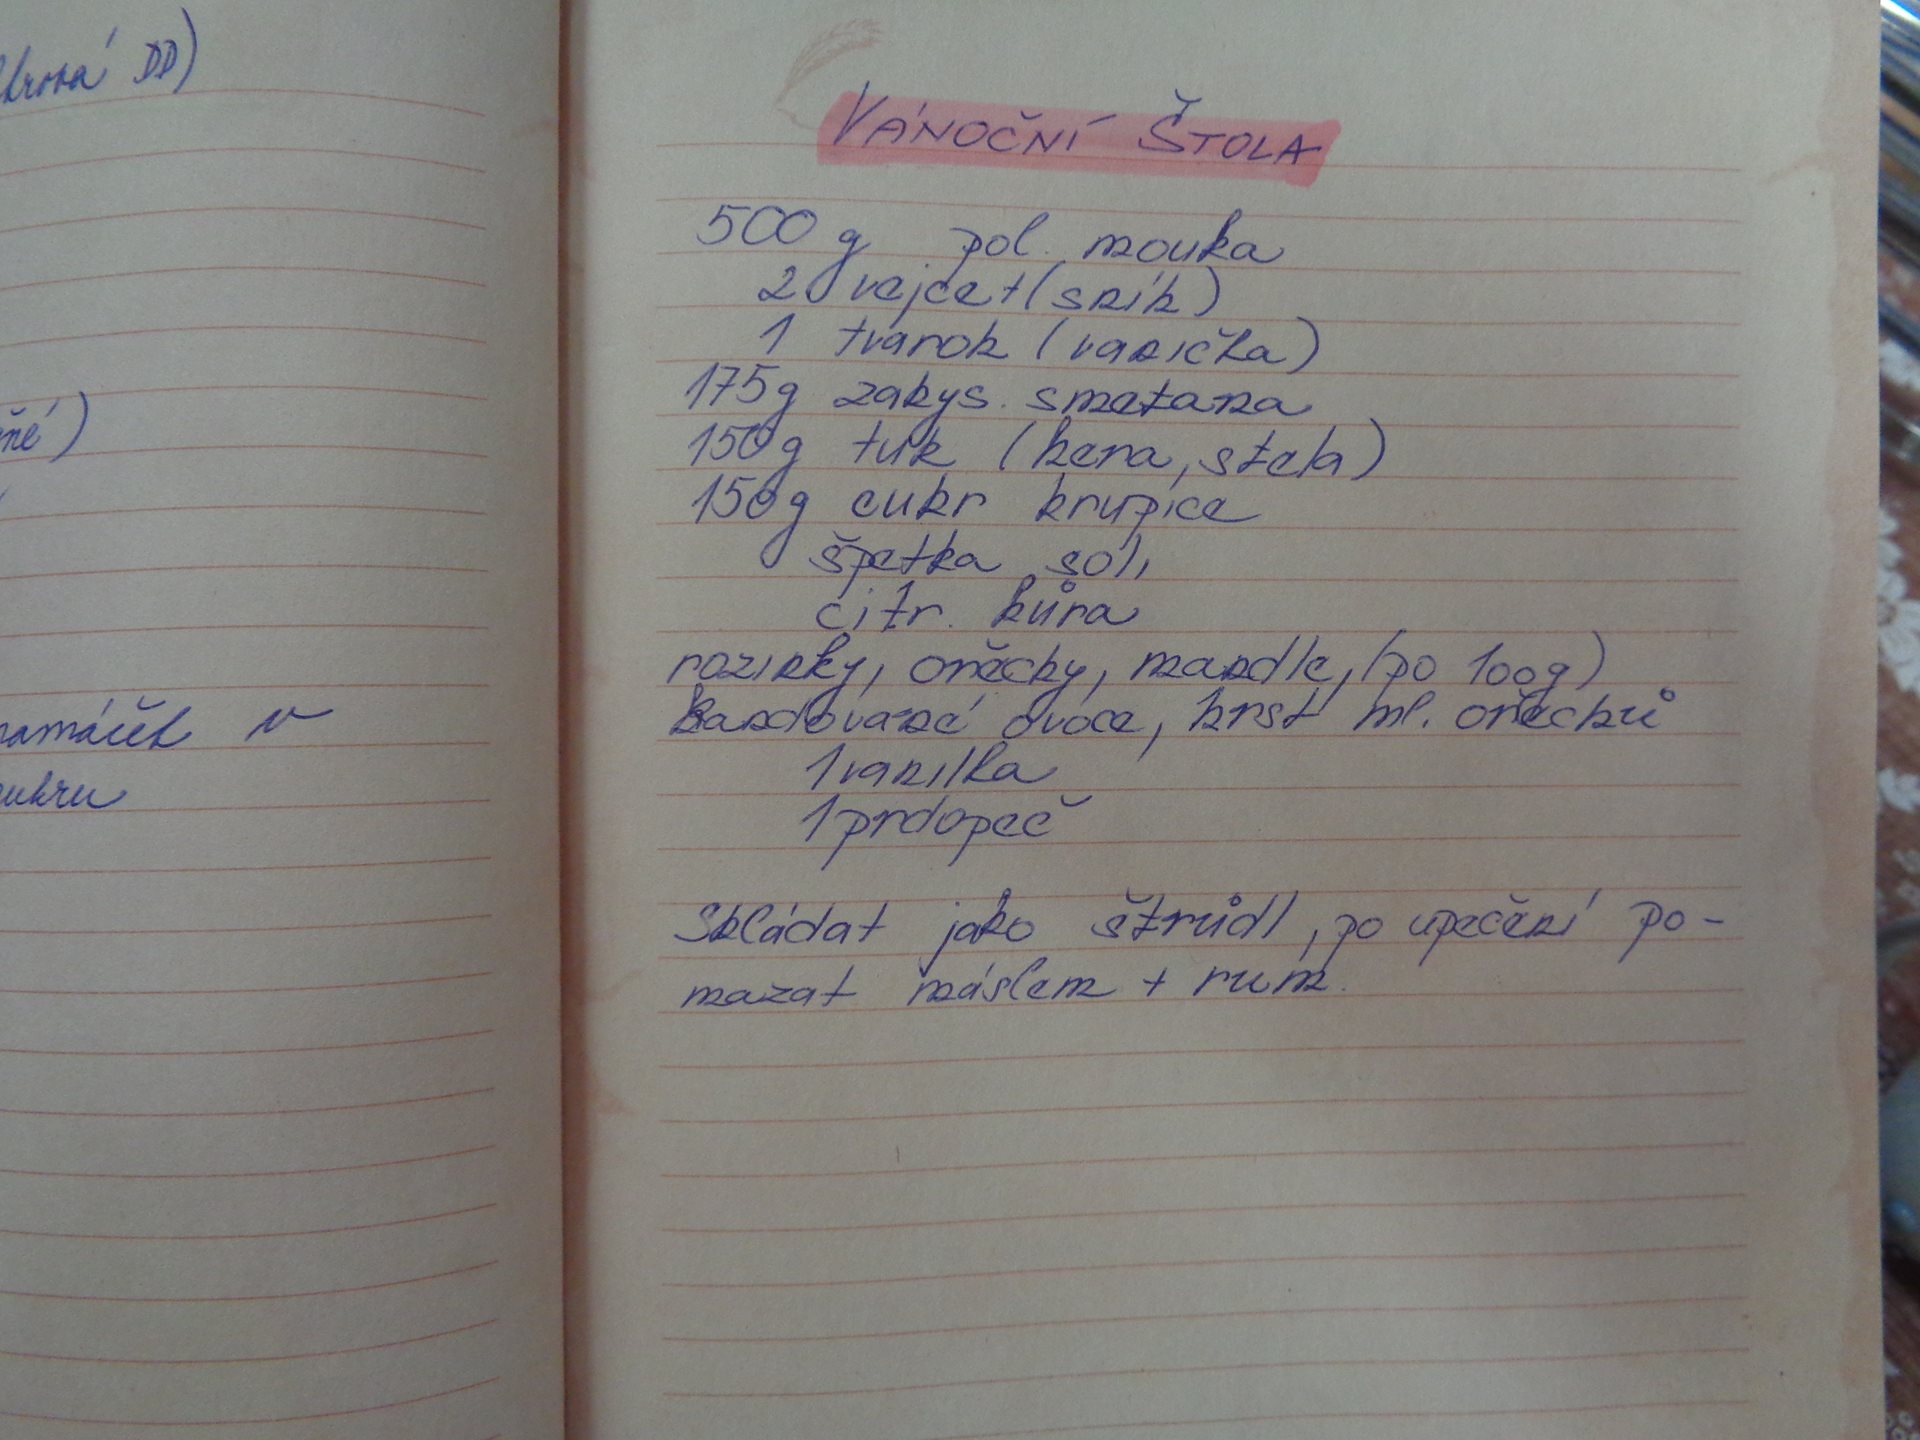 DD)
v
VÁNOČNÍ ŠTOLA
500 g pol. mouka
2 vejce+(sníh)
1 tvaroh (vanička)
175g zakys. smetana
150g tuk (hera, stela)
150g cukr krupice
špetka soli
citr. kůra
rozinky, oříšky, mandle, (po 100g)
kandované ovoce, hrst ml. oříšků
1 vanilka
1 prdopeč
Skládat jako štrůdl, po upečení po-
mazat máslem + rum.